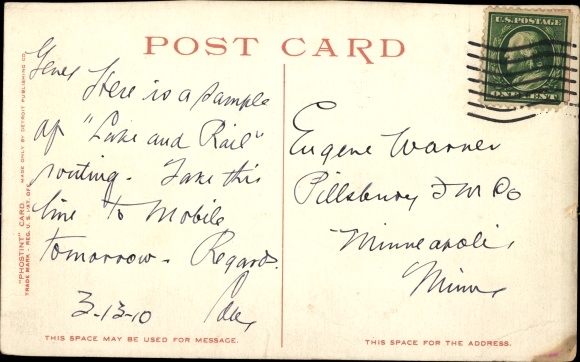 POST CARD
U.S. POSTAGE
ONE CENT
Gene,
Here is a sample
of "Lake and Rail"
routing. Take this
line to Mobile
tomorrow. Regards.
3-13-10
Eugene Warner
Pillsbury F M Co
Minneapolis
Minn,
"PHOSTINT" CARD
MADE ONLY BY DETROIT PUBLISHING CO.
TRADE MARK REG. U.S. PAT. OFF.
THIS SPACE MAY BE USED FOR MESSAGE.
THIS SPACE FOR THE ADDRESS.